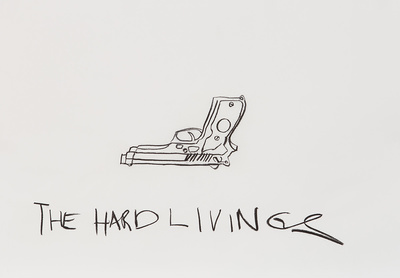 THE HARD LIVING